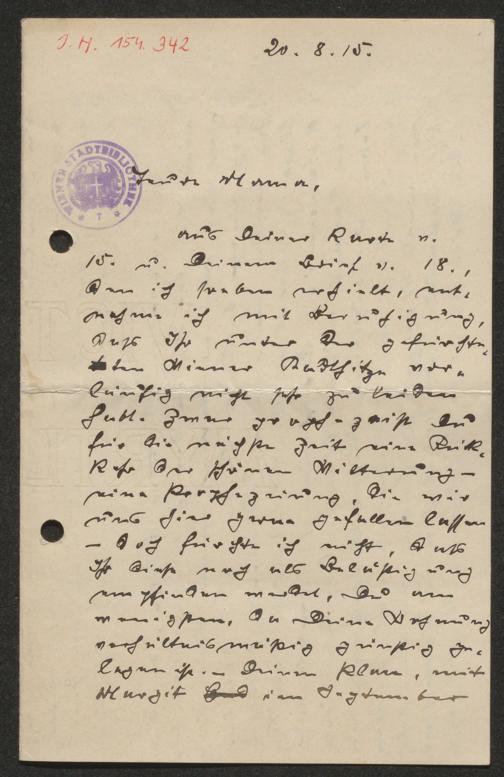 J.N. 154.342
20. 8. 15.
WIENER STADTBIBLIOTHEK
Teure Mama,
aus Deiner Karte v.
15. u. Deinem Brief v. 18.,
den ich soeben erhielt, ent-
nehme ich mit Beruhigung,
dass Ihr unter der gefürchte-
ten Wiener Stadthitze vor-
läufig nicht sehr zu leiden
habt. Zwar prophezeist Du
für die nächste Zeit eine Rück-
kehr der schönen Witterung –
eine Prophezeiung, die wir
uns hier gerne gefallen lassen
– doch fürchte ich nicht, dass
Ihr diese noch als Belästigung
empfinden werdet, Du am
wenigsten, da Deine Wohnung
verhältnismäßig günstig ge-
legen ist. – Deinen Plan, mit
Margit im September